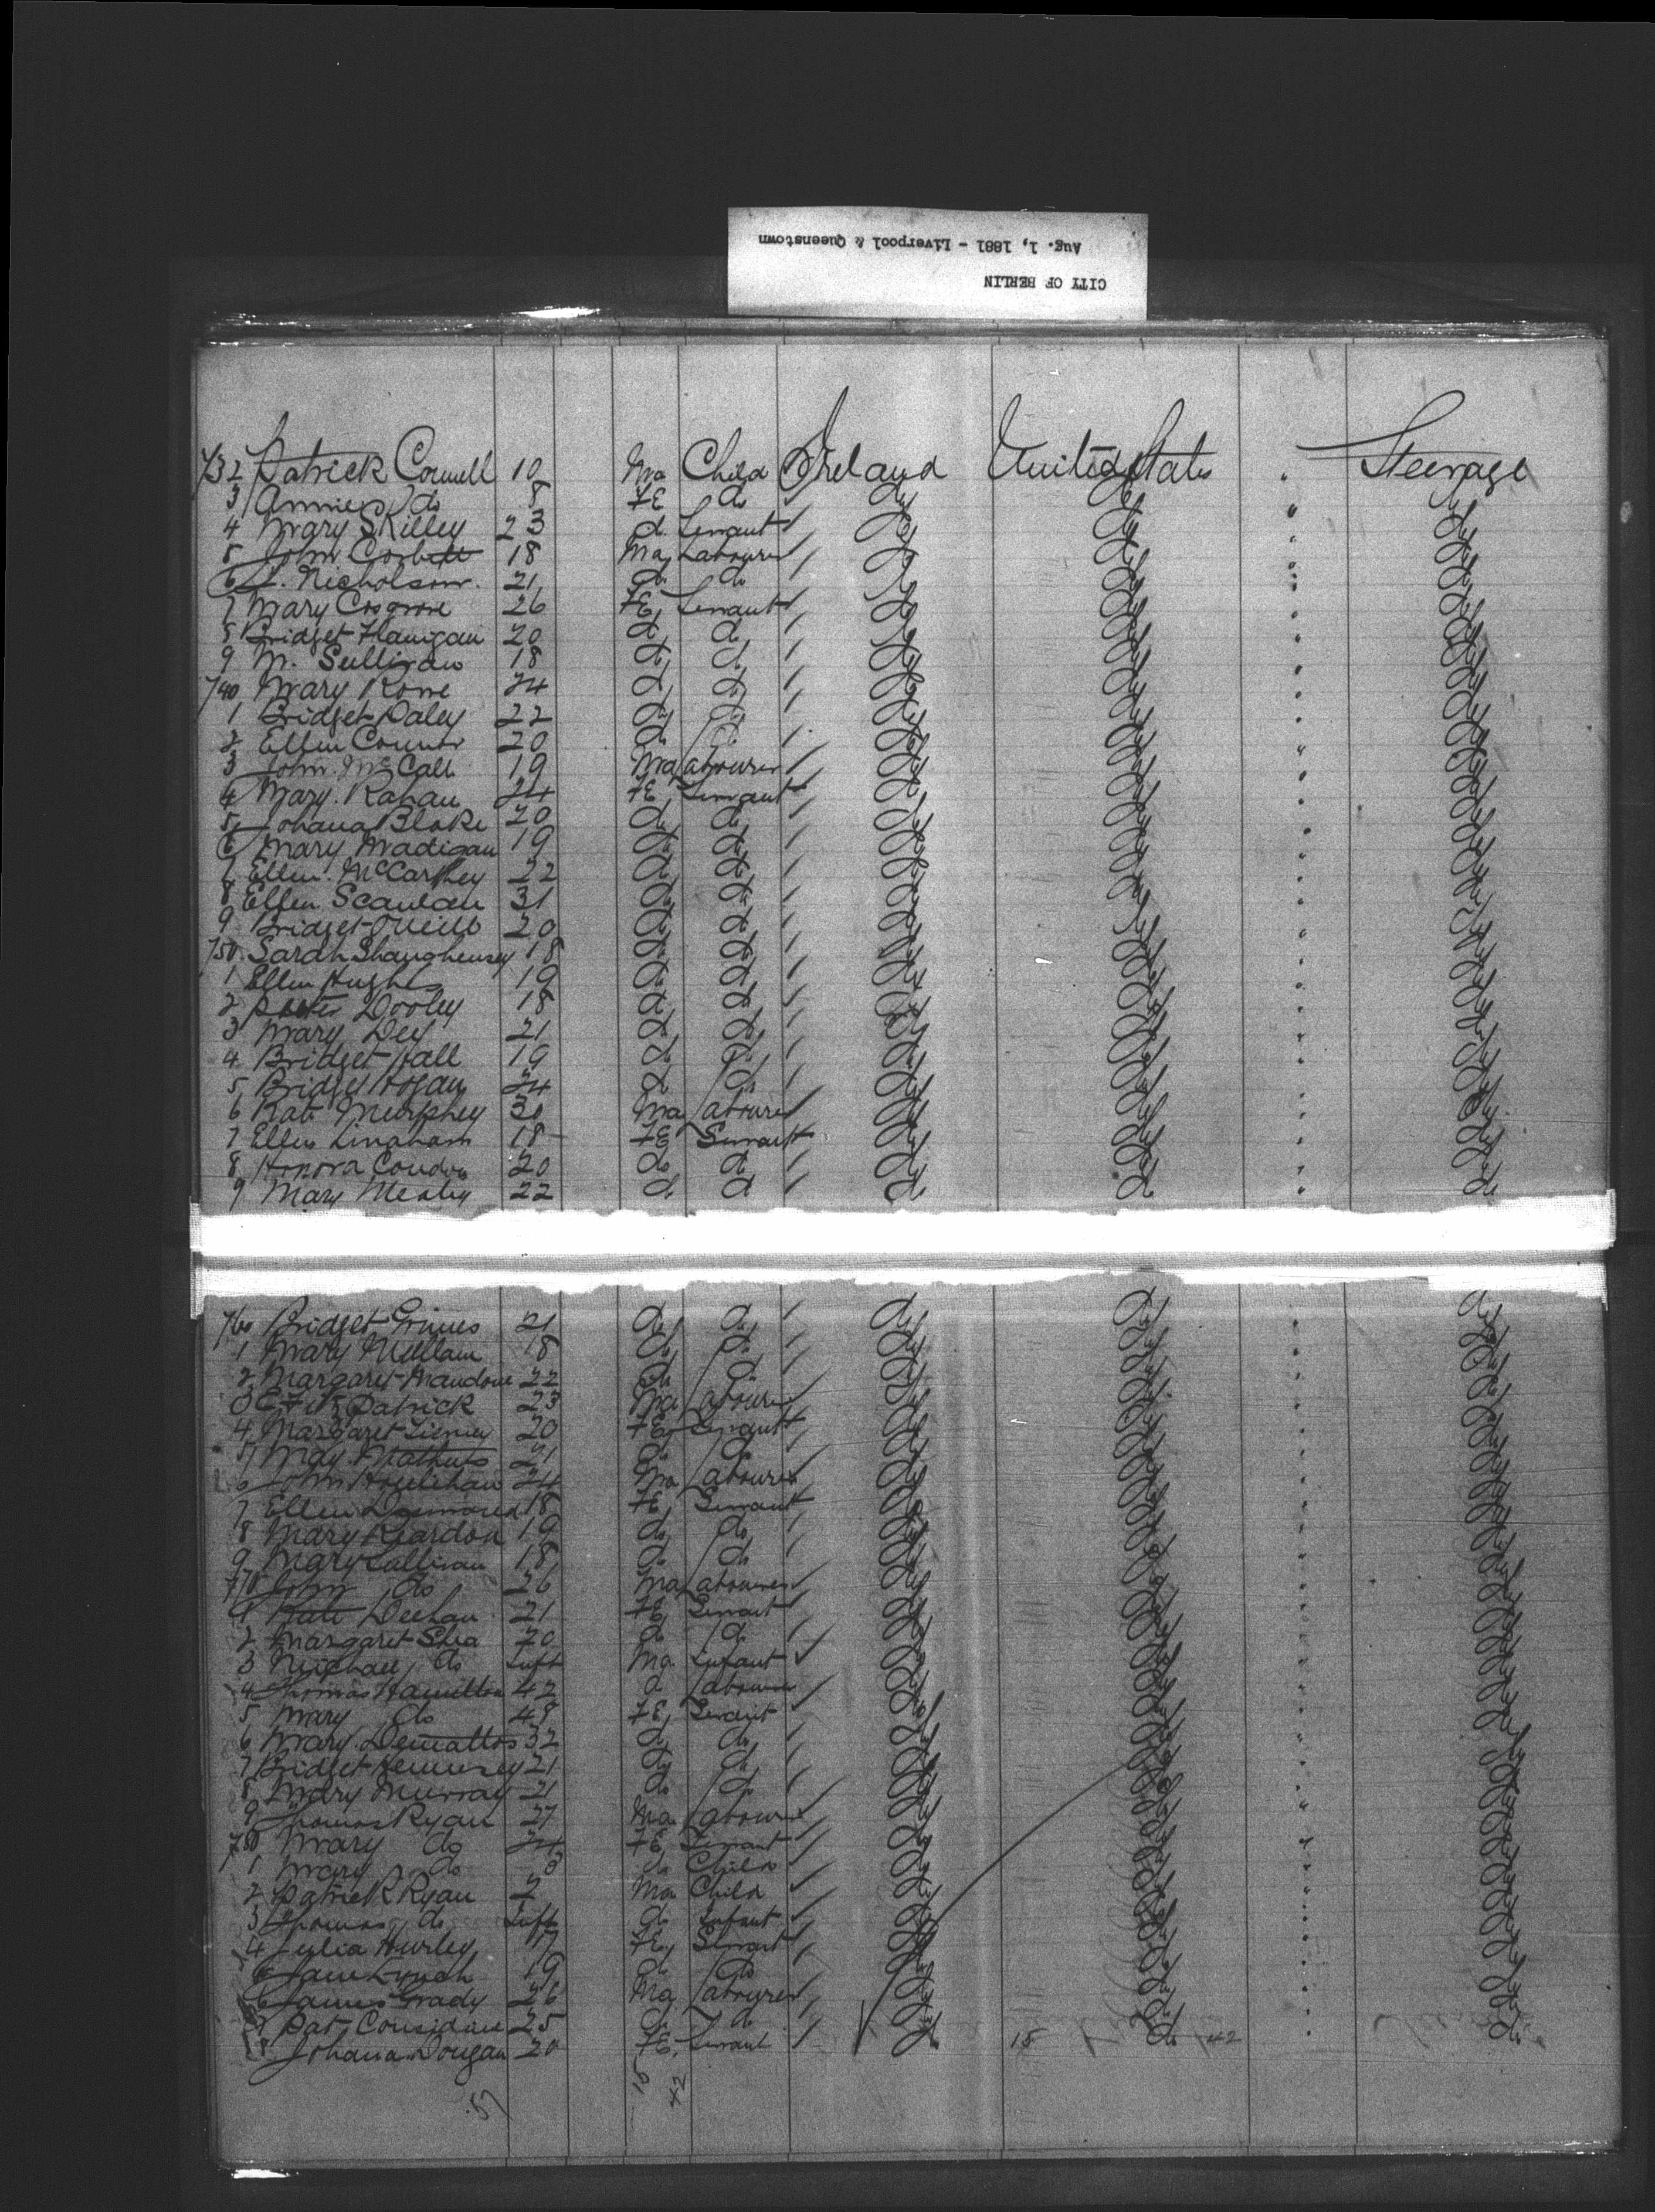 CITY OF BERLIN
Aug. 1, 1881 - Liverpool & Queenstown
732 Patrick Connell 10 Ma Child Ireland United States " Steerage
3 Annie do 8 FE do do do " do
4 Mary Skilley 23 do Servant do do " do
5 John Corbett 18 Ma Labourer do do " do
6 Nicholson 21 do do do do " do
7 Mary Cosgrove 26 FE Servant do do " do
8 Bridget Flanigan 20 do do do do " do
9 M. Sullivan 18 do do do do " do
740 Mary Rowe 24 do do do do " do
1 Bridget Daley 22 do do do do " do
2 Ellen Connor 20 do do do do " do
3 John McCall 19 Ma Labourer do do " do
4 Mary Kahan 24 FE Servant do do " do
5 Johana Blake 20 do do do do " do
6 Mary Madigan 19 do do do do " do
7 Ellen McCarthey 22 do do do do " do
8 Ellen Scanlan 31 do do do do " do
9 Bridget ONeill 20 do do do do " do
750 Sarah Shaughensey 18 do do do do " do
1 Ellen Hughes 19 do do do do " do
2 Dooley 18 do do do do " do
3 Mary Dey 21 do do do do " do
4 Bridget Hall 19 do do do do " do
5 Bridget Hogan 24 do do do do " do
6 Kate Murphey 30 Ma Labourer do do " do
7 Ellen Linaham 18 FE Servant do do " do
8 Honora Condon 20 do do do do " do
9 Mary Mealey 22 do do do do " do
760 Bridget Grimes 21 do do do do " do
1 Mary 18 do do do do " do
2 Margaret 22 do do do do " do
3 E Fitz Patrick 23 Ma Labourer do do " do
4 Margaret Tierney 20 FE Servant do do " do
5 May 21 do do do do " do
6 John Houlihan 24 Ma Labourer do do " do
7 Ellen Desmond 18 FE Servant do do " do
8 Mary Reardon 19 do do do do " do
9 Mary Sullivan 18 do do do do " do
770 John do 26 Ma Labourer do do " do
1 Kate Deehan 21 FE Servant do do " do
2 Margaret Shea 20 do do do do " do
3 Michael do Inft Ma Infant do do " do
4 Thomas Hamilton 42 do Labourer do do " do
5 Mary do 48 FE Servant do do " do
6 Mary Demattos 32 do do do do " do
7 Bridget Hennesey 21 do do do do " do
8 Mary Murray 21 do do do do " do
9 Thomas Ryan 27 Ma Labourer do do " do
780 Mary do 24 FE Servant do do " do
1 Mary do 3 do Child do do " do
2 Patrick Ryan 2 Ma Child do do " do
3 Thomas do Inft do Infant do do " do
4 Julia Hurley 17 FE Servant do do " do
5 Jane Lynch 19 do do do do " do
6 James Grady 26 Ma Labourer do do " do
7 Pat Considine 25 do do do do " do
8 Johana Dougan 20 FE Servant do 15 do 42 " do
57 15 42